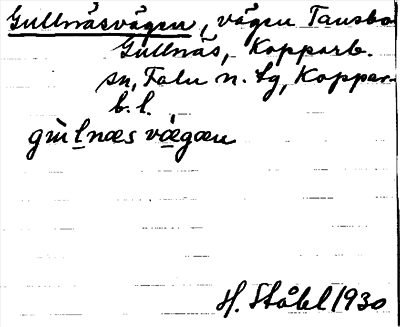 Gullnäsvägen, vägen Tansbo
Gullnäs, Kopparb.
sn, Falu n. tg, Koppar-
b. l.
gu̇̀l̲næs vá̲gæn
H. Ståhl 1930